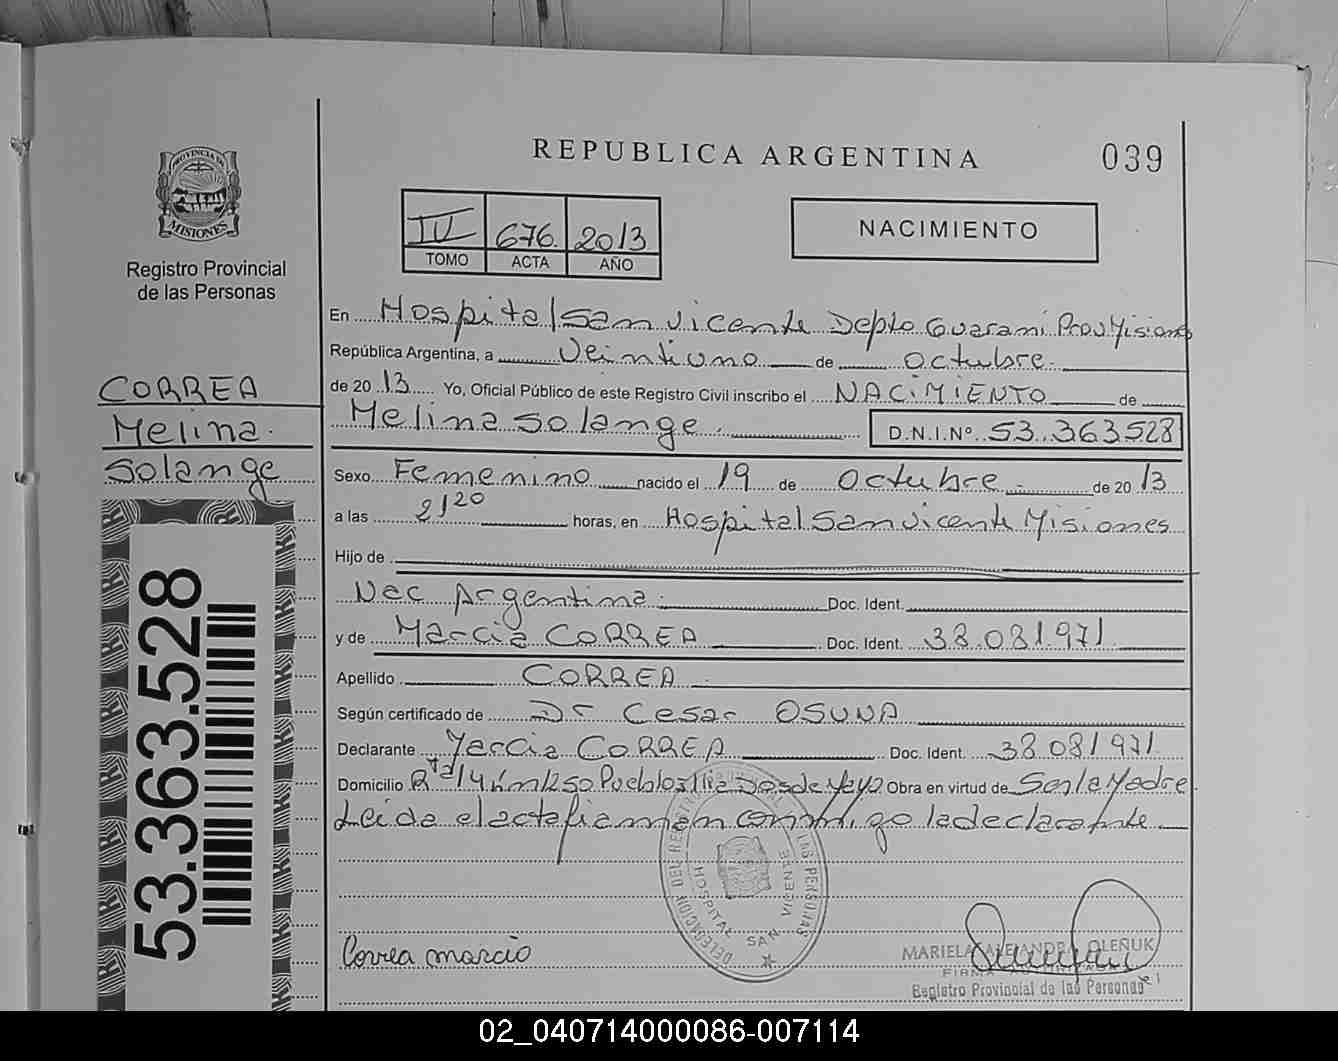 REPUBLICA ARGENTINA
039
PROVINCIA DE
MISIONES
Registro Provincial
de las Personas
IV 676 2013
TOMO ACTA AÑO
NACIMIENTO
En Hospital San Vicente Depto Guarani Prov Misiones
República Argentina, a Veintiuno de octubre
de 2013 Yo, Oficial Público de este Registro Civil inscribo el NACIMIENTO de
Melina Solange D.N.I.Nº 53.363528
CORREA
Melina
Solange
Sexo Femenino nacido el 19 de Octubre de 2013
a las 21 20 horas, en Hospital San Vicente Misiones
Hijo de
Nac Argentina Doc. Ident.
y de Marcia CORREA Doc. Ident. 38.081971
Apellido CORREA
Según certificado de Dr Cesar OSUNA
Declarante Marcia CORREA Doc. Ident. 38081971
Domicilio Rta 14 km 1250 Pueblo Illia Dos de Mayo Obra en virtud de Ser la Madre
Leida el acta firman conmigo la declarante
53.363.528
DELEGACION DEL REGISTRO PROVINCIAL DE LAS PERSONAS
HOSPITAL SAN VICENTE
Correa marcia
MARIELA ALEJANDRA OLEÑUK
Registro Provincial de las Personas
02_040714000086-007114